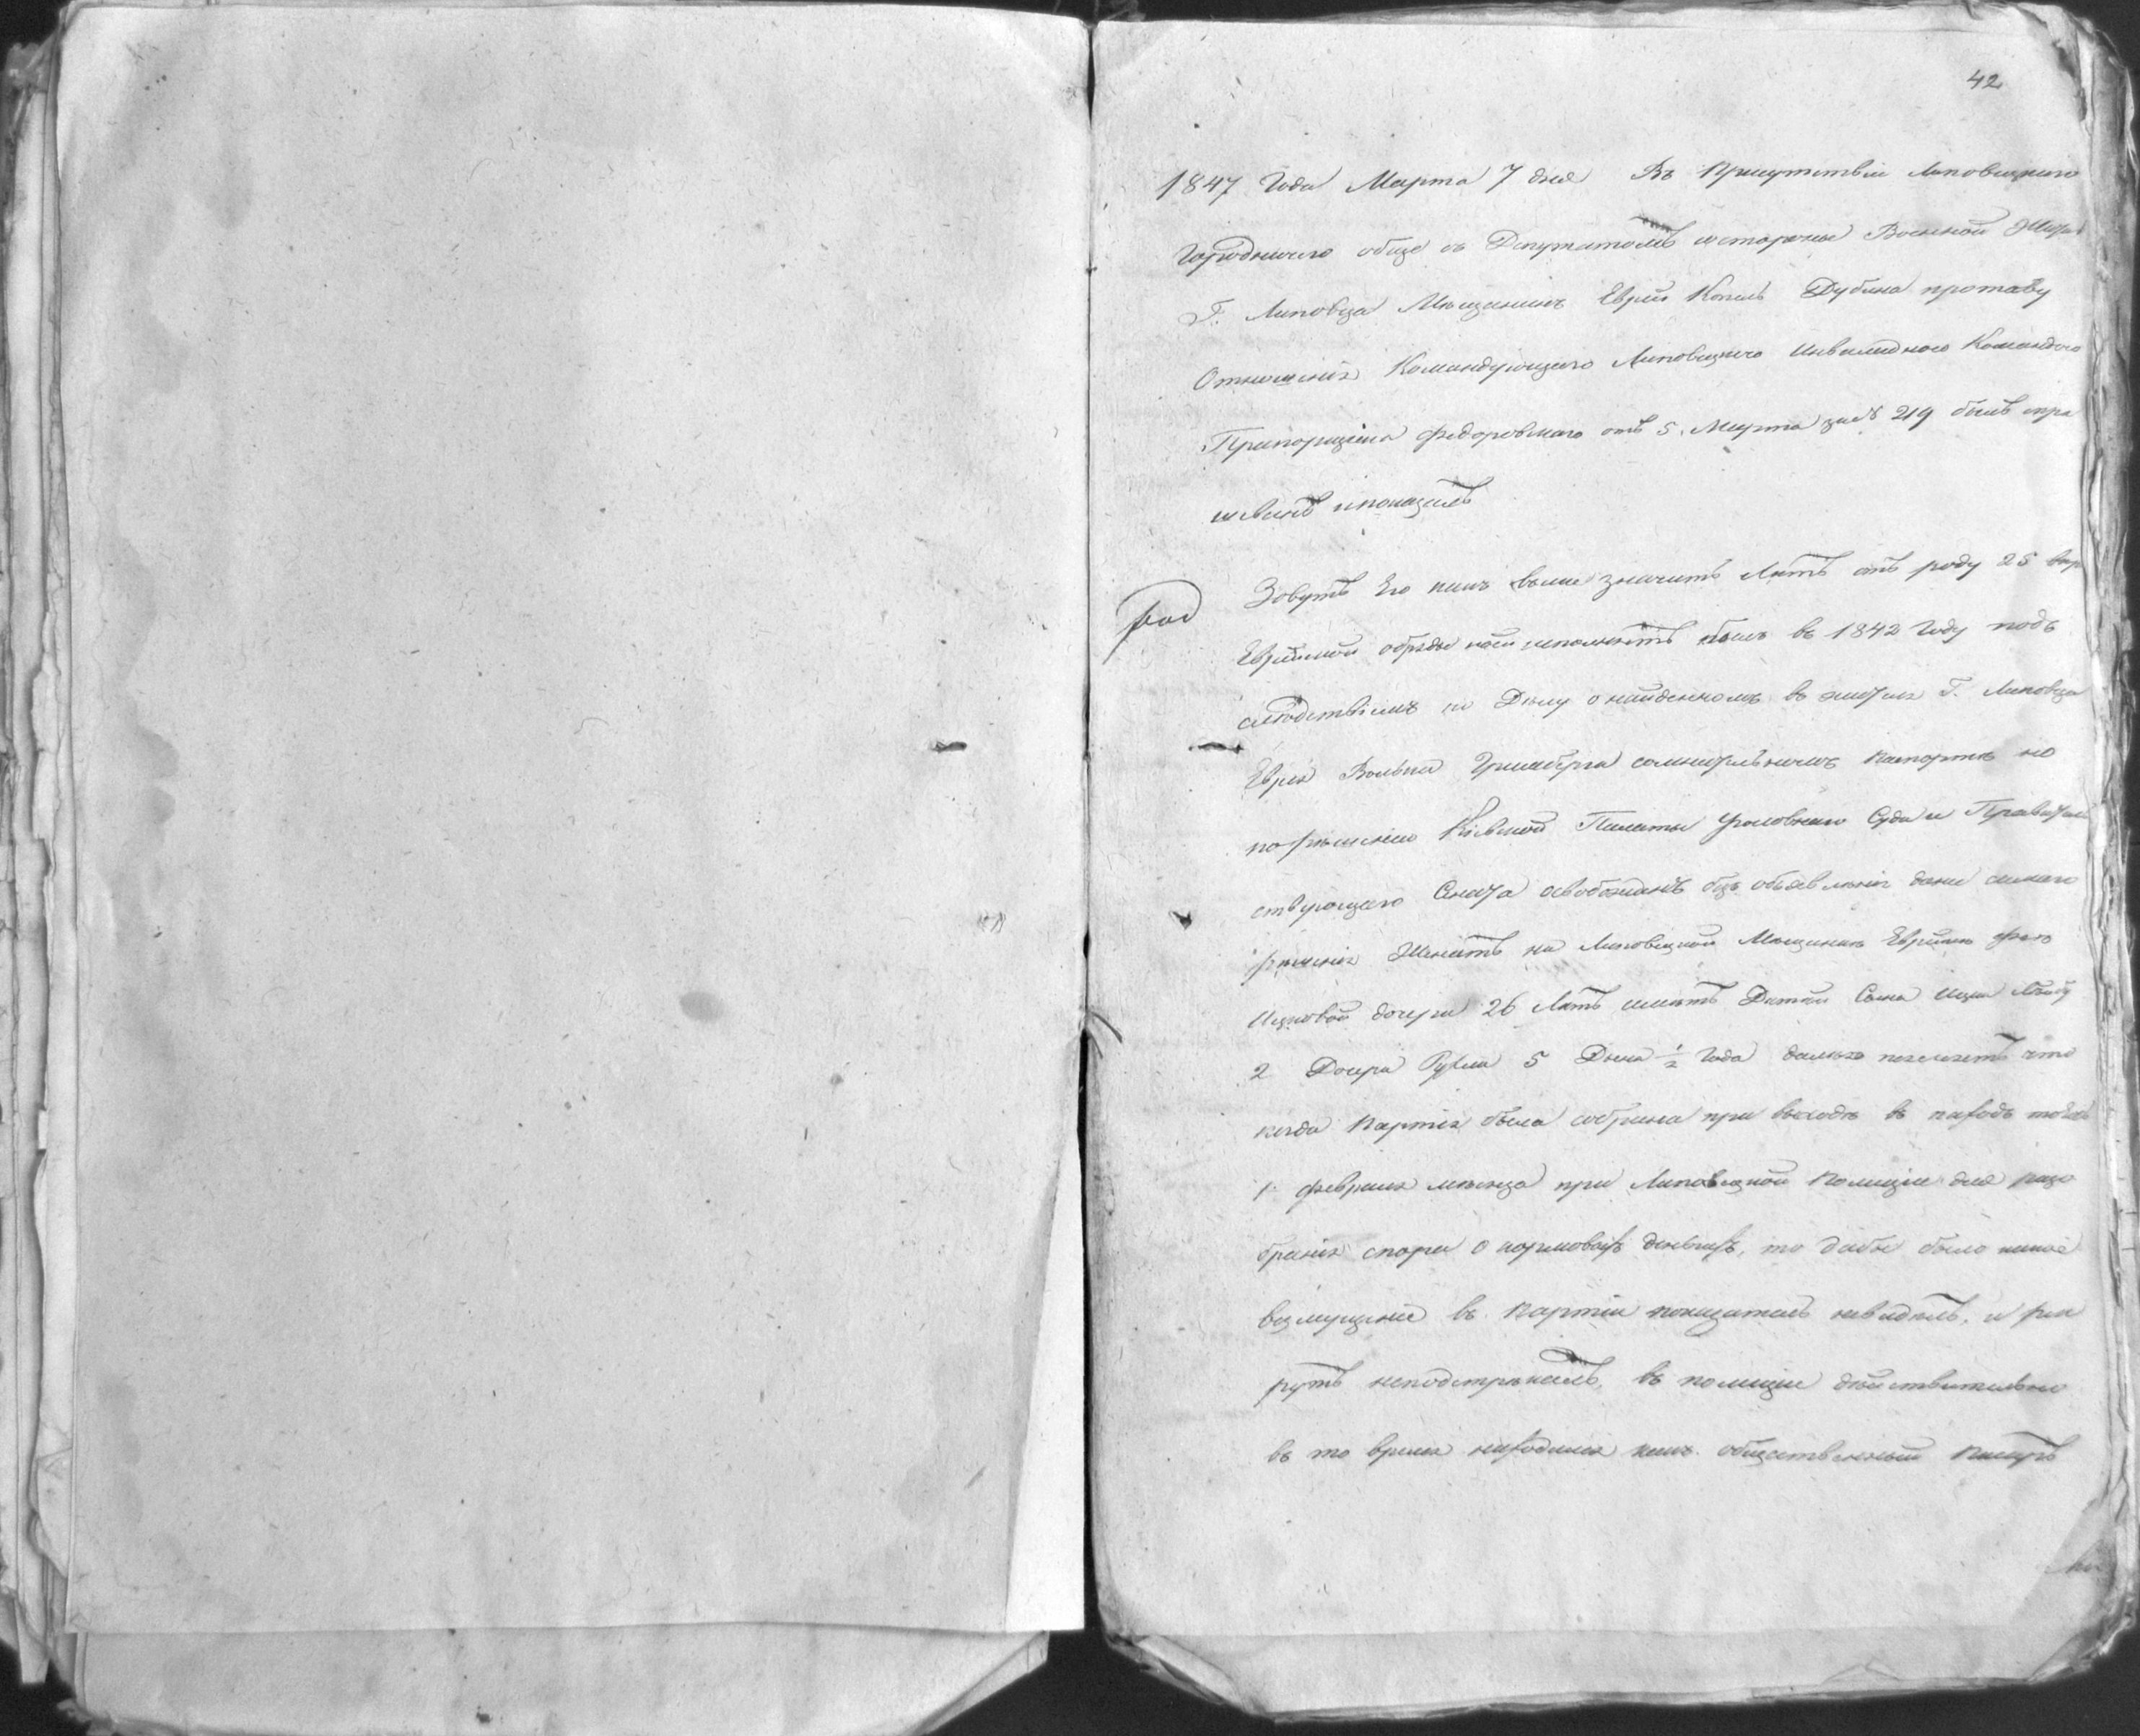 42
1847 года Марта 7 дня Въ Присутствіи Липовецкаго
Городничего обще съ Депутатомъ состороны Военной
Г. Липовца Мѣщанинъ Еврей Копель Дубина противу
Отношенія Командующаго Липовецкою Инвалидною Командою
Прапорщика Федоровскаго отъ 5. Марта за № 219 былъ спра
шиванъ и показалъ
Зовутъ Его какъ выше значитъ Лѣтъ отъ роду 25 вѣры
Еврейской обряды ней исполняетъ былъ въ 1842 Году подъ
слѣдствіемъ по Дѣлу о найденномъ въ жителя Г. Липовца
Еврея Волька сомнительномъ паспортѣ но
по рѣшенію Кіевской Палаты Уголовнаго Суда и Правитель
ствующаго Сената освобожденъ безъ объявленія даже самаго
рѣшенія Женатъ на Липовецкой Мѣщанкѣ Еврейкѣ
Ицковой дочери 26 Лѣтъ имѣетъ Дѣтей Сына
2 Дочери 5 ½ Года далѣе что
когда партія была собрана при выходѣ въ походъ
1. февраля мѣсяца при Липовецкой Полиціи для разо
бранія спора о кормовыхъ деньгахъ, то дабы было какое
возмущеніе въ партіи показатель невидѣлъ, и рек
рутъ неподстрѣкалъ, въ полиціи дѣйствительно
въ то время находился какъ общественный писарь